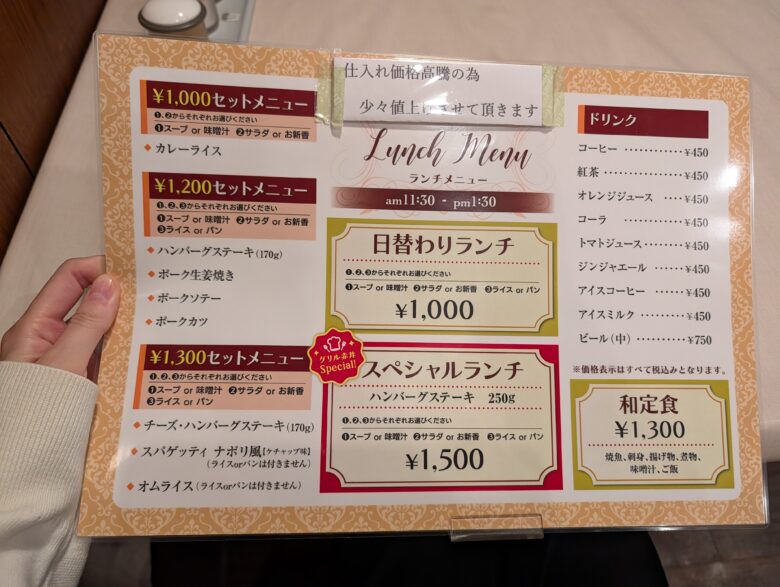 仕入れ価格高騰の為
少々値上げさせて頂きます
Lunch Menu
ランチメニュー
am11:30 - pm1:30
¥1,000セットメニュー
❶、❷からそれぞれお選びください
❶スープ or 味噌汁 ❷サラダ or お新香
◆ カレーライス
¥1,200セットメニュー
❶、❷、❸からそれぞれお選びください
❶スープ or 味噌汁 ❷サラダ or お新香
❸ライス or パン
◆ ハンバーグステーキ(170g)
◆ ポーク生姜焼き
◆ ポークソテー
◆ ポークカツ
¥1,300セットメニュー
❶、❷、❸からそれぞれお選びください
❶スープ or 味噌汁 ❷サラダ or お新香
❸ライス or パン
◆ チーズ・ハンバーグステーキ(170g)
◆ スパゲッティ ナポリ風【ケチャップ味】
(ライスorパンは付きません)
◆ オムライス(ライスorパンは付きません)
日替わりランチ
❶、❷、❸からそれぞれお選びください
❶スープ or 味噌汁 ❷サラダ or お新香 ❸ライス or パン
¥1,000
グリル赤井
Special!
スペシャルランチ
ハンバーグステーキ 250g
❶、❷、❸からそれぞれお選びください
❶スープ or 味噌汁 ❷サラダ or お新香 ❸ライス or パン
¥1,500
ドリンク
コーヒー ………… ¥450
紅茶 ………… ¥450
オレンジジュース ……… ¥450
コーラ ………… ¥450
トマトジュース ………… ¥450
ジンジャエール ……… ¥450
アイスコーヒー ……… ¥450
アイスミルク ……… ¥450
ビール(中) ……… ¥750
※価格表示はすべて税込みとなります。
和定食
¥1,300
焼魚、刺身、揚げ物、煮物、
味噌汁、ご飯